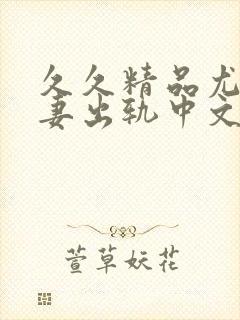 久久精品尤
妻出轨中文
萱草妖花